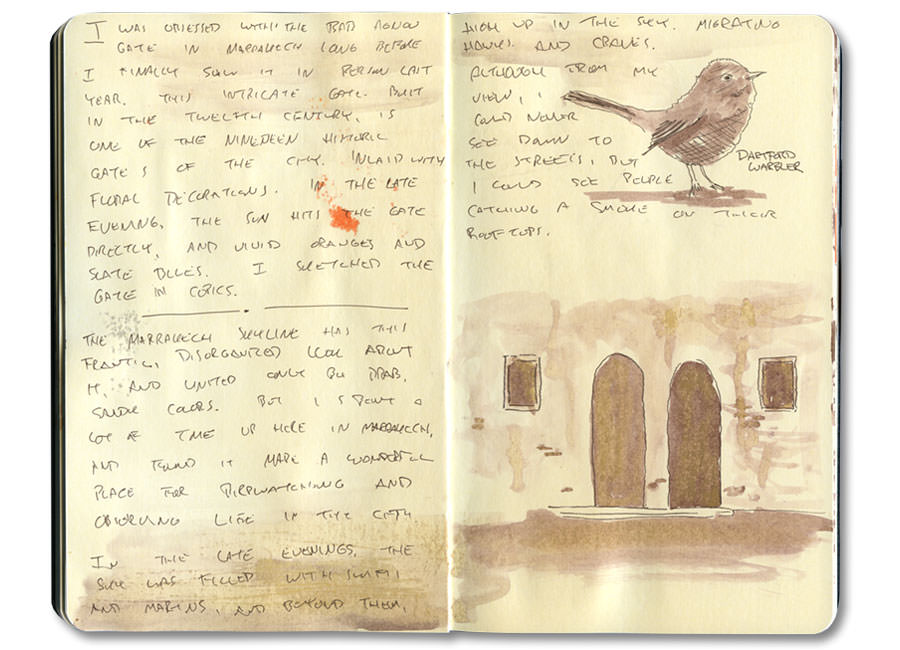 I WAS OBSESSED WITH THE BAB AGNOU
GATE IN MARRAKECH LONG BEFORE
I FINALLY SAW IT IN PERSON LAST
YEAR. THIS INTRICATE GATE, BUILT
IN THE TWELFTH CENTURY, IS
ONE OF THE NINETEEN HISTORIC
GATES OF THE CITY. INLAID WITH
FLORAL DECORATIONS. IN THE LATE
EVENING, THE SUN HITS THE GATE
DIRECTLY, AND VIVID ORANGES AND
SLATE BLUES. I SKETCHED THE
GATE IN COPICS.
THE MARRAKECH SKYLINE HAS THIS
FRANTIC, DISORGANIZED LOOK ABOUT
IT, AND UNITED ONLY BY DRAB,
COLORS. BUT I SPENT A
LOT OF TIME UP HERE IN MARRAKECH,
AND FOUND IT MAKE A WONDERFUL
PLACE FOR BIRDWATCHING AND
OBSERVING LIFE IN THE CITY.
IN THE LATE EVENINGS, THE
SKY WAS FILLED WITH SWIFTS
AND MARTINS, AND BEYOND THEM,
HIGH UP IN THE SKY, MIGRATING
HAWKS AND CRANES.
ALTHOUGH FROM MY
VIEW, I
COULD NEVER
SEE DOWN TO
THE STREETS, BUT
I COULD SEE PEOPLE
CATCHING A SMOKE ON THEIR
ROOFTOPS.
DARTFORD
WARBLER